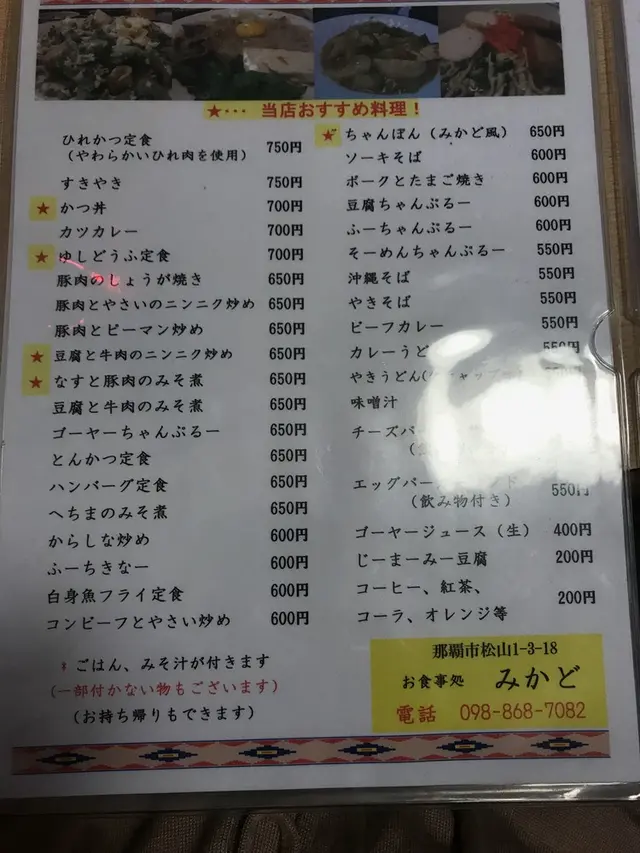 ★・・・ 当店おすすめ料理!
ひれかつ定食
(やわらかいひれ肉を使用) 750円
すきやき 750円
★ かつ丼 700円
カツカレー 700円
★ ゆしどうふ定食 700円
豚肉のしょうが焼き 650円
豚肉とやさいのニンニク炒め 650円
豚肉とピーマン炒め 650円
★ 豆腐と牛肉のニンニク炒め 650円
★ なすと豚肉のみそ煮 650円
豆腐と牛肉のみそ煮 650円
ゴーヤーちゃんぷるー 650円
とんかつ定食 650円
ハンバーグ定食 650円
へちまのみそ煮 650円
からしな炒め 600円
ふーちきなー 600円
白身魚フライ定食 600円
コンビーフとやさい炒め 600円
* ごはん、みそ汁が付きます
(一部付かない物もございます)
(お持ち帰りもできます)
★ ちゃんぽん(みかど風) 650円
ソーキそば 600円
ポークとたまご焼き 600円
豆腐ちゃんぷるー 600円
ふーちゃんぷるー 600円
そーめんちゃんぷるー 550円
沖縄そば 550円
やきそば 550円
ビーフカレー 550円
カレーうど
やきうどん
味噌汁
チーズバ
エッグバー
550円
(飲み物付き)
ゴーヤージュース(生) 400円
じーまーみー豆腐 200円
コーヒー、紅茶、
コーラ、オレンジ等 200円
那覇市松山1-3-18
お食事処 みかど
電話 098-868-7082